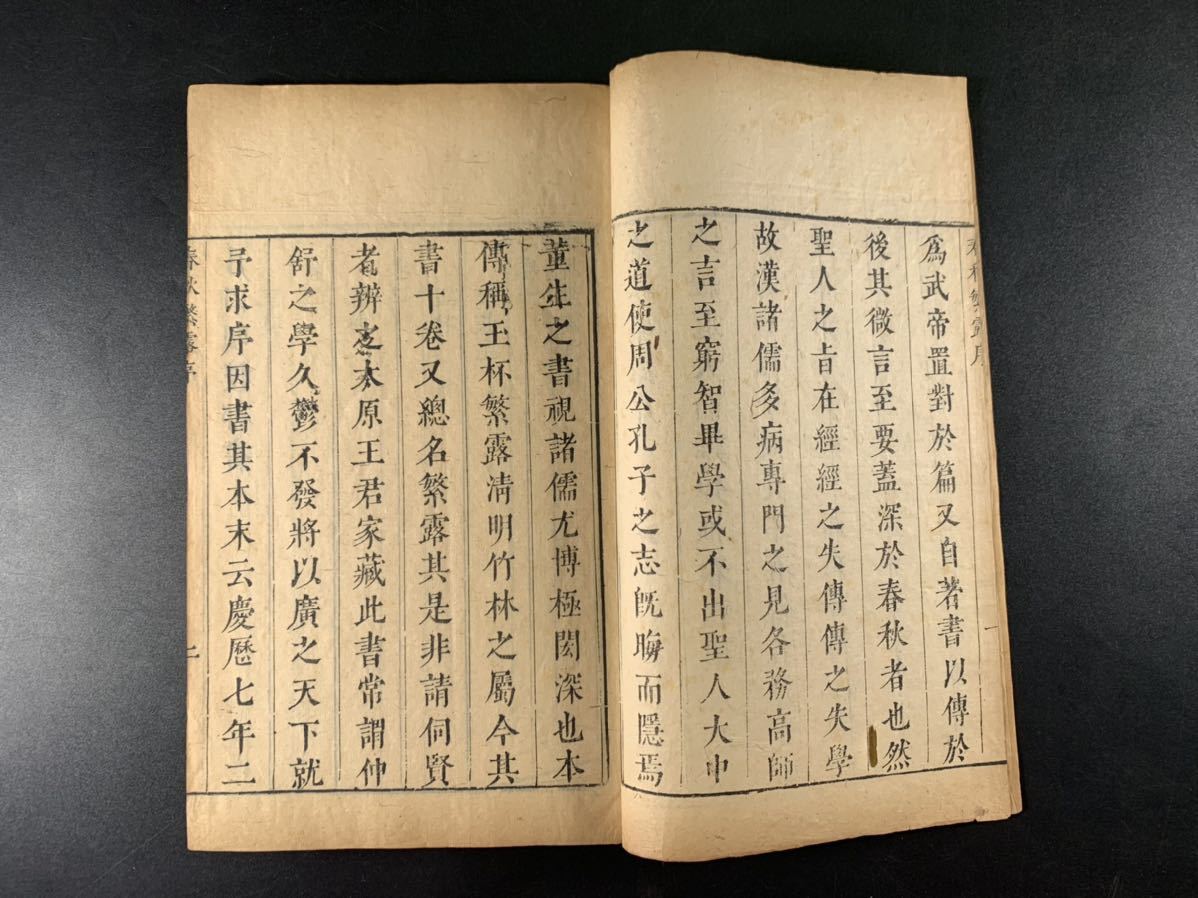 春秋繁露序
一
爲武帝置對於篇又自著書以傳於
後其微言至要蓋深於春秋者也然
聖人之旨在經經之失傳傳之失學
故漢諸儒多病專門之見各務高師
之言至窮智畢學或不出聖人大中
之道使周公孔子之志旣晦而隱焉
董生之書視諸儒尤博極閎深也本
傳稱王杯繁露清明竹林之屬今其
書十卷又總名繁露其是非請伺賢
者辨之太原王君家藏此書常謂仲
舒之學久鬱不發將以廣之天下就
予求序因書其本末云慶曆七年二
春秋繁露序
二